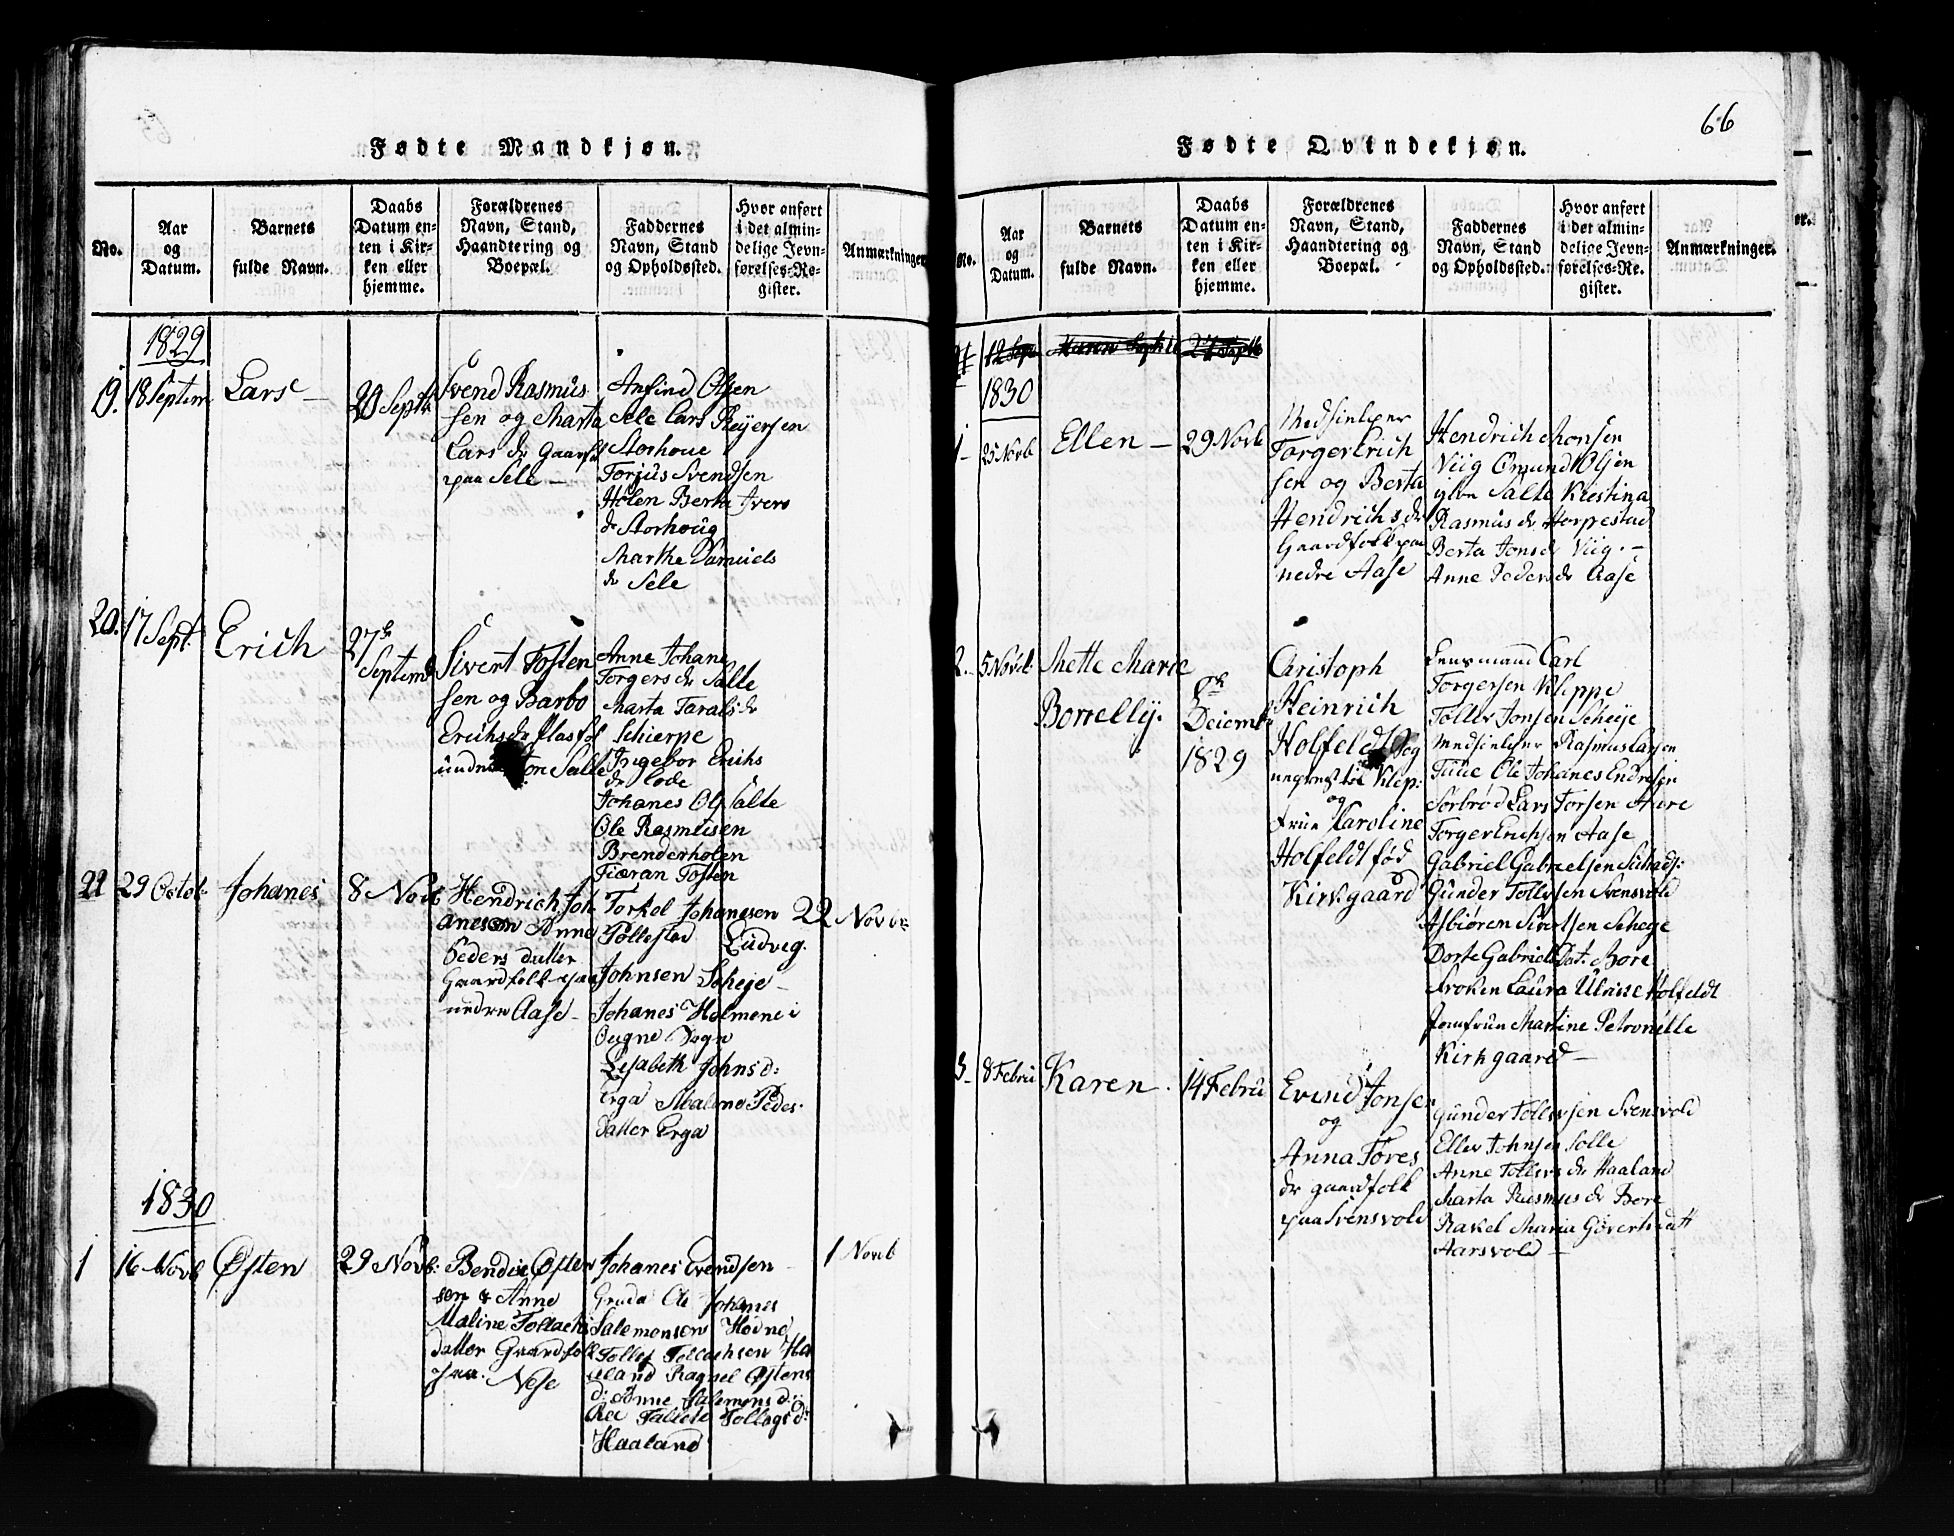 66
Fødte Mandkjøn.
No.
Aar
og
Datum.
Barnets
fulde Navn.
Daabs
Datum en-
ten i Kir-
ken eller
hjemme.
Forældrenes
Navn, Stand,
Haandtering og
Boepæl.
Faddernes
Navn, Stand
og Opholdssted.
Hvor anført
i det almin-
delige Jevn-
førelses-Re-
gister.
Anmærkninger.
1829
19.
18 Septem
Lars
20 Septr
Svend Rasmus
sen og Marta
Lars dr Gaardfol
paa Sele
Anfind Olsen
Sele Lars Reijersen
Storhoue
Torjus Svendsen
Holen Berta Ivers
dr Storhoug
Marthe Samuels
dr Sele
20.
17 Sept.
Erich
27de
Septemb
Sivert Tosten
sen og Barbo
Erichsdr Plasfol
unde Salte
Anne Johane
Torgers dr Salte
Marta Taralsdr
Schierpe
Ingebor Erichs
dr Lode
Johanes Ols Salte
Ole Rasmusen
Brenderholen
Tosten
21
29 Octob:
Johanes
8 Novb
Hendrich Joh
anesen Anne
Peders datter
Gaardfolk paa
nedre Aase
Torkel Johanesen
Tollested Ludvig.
Johnsen Scheje
Johanes Holmene i
Ougne Sogn
Lisabeth Johns d:
Erga Malene Peders
datter Erga
22 Novbr
1830
1
16 Novb
Østen
29 Novb:
Bendix Østen
sen & Anne
Maline Tollachs
datter Gaardfolk
paa Nese
Johanes Evendsen
Gruda Ole Johanes
Salemonsen Hodne
Tollef Tollachsen Ha
aland Ragnel Østens
d: Anne Salemons d:
Ree Tollags d:
Haaland
1 Novb
Fødte Qvindekjøn.
No.
Aar
og
Datum.
Barnets
fulde Navn.
Daabs
Datum en-
ten i Kir-
ken eller
hjemme.
Forældrenes
Navn, Stand,
Haandtering og
Boepæl.
Faddernes
Navn, Stand
og Opholdssted.
Hvor anført
i det almin-
delige Jevn-
førelses-Re-
gister.
Anmærkninger.
12 Sep
27 Septb
1830
1
25 Novb
Ellen
29 Novb
Medhielper
Torger Erich
sen og Berta
Hendrichs dr
Gaardfolk paa
nedre Aase
Hendrich Monsen
Viig Omund Olsen
Salte Kristina
Rasmus dr Horpestad
Berta Jonsd Viig
Anne Peders dr Aase
2.
5 Novb:
Mette Marie
Borrelly.
8de
Decemb
1829
Christoph
Heinrich
Holfeldt Sog
neprest til Klep:
og
frue Karoline
Holfeldt fød
Kirkgaard
Lensmand Carl
Torgersen Kleppe
Toller Jonsen Scheje
Medhielper Rasmus Larsen
Tuue Ole Johanes Endresen
Sørbrød Lars Torsen Aure
Torger Erichsen Aase
Gabriel Gabrielsen
Gunder Tollefsen Svensvold
Asbiøren Sivertsen Scheje
Dorte Gabriels Dat. Bore
Frøken Laura Ulrike Holfeldt
Jomfrue Martine Petronelle
Kirkgaard
3
8 Febru
Karen.
14 Febru
Evind Jonsen
og
Anna Tores
dr gaardfolk
paa Svensvold
Gunder Tollefsen Svensvold
Eller Johnsen Solle
Anne Tollefs dr Haaland
Marta Rasmus dr Bore
Rakel Maria Govertsdatt
Aarsvold